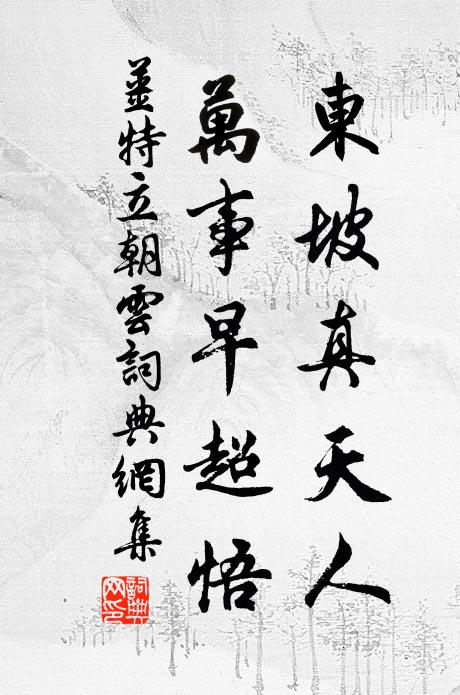 東坡真天人
萬事早超悟
姜特立朝雲詞典網集
詞典網印